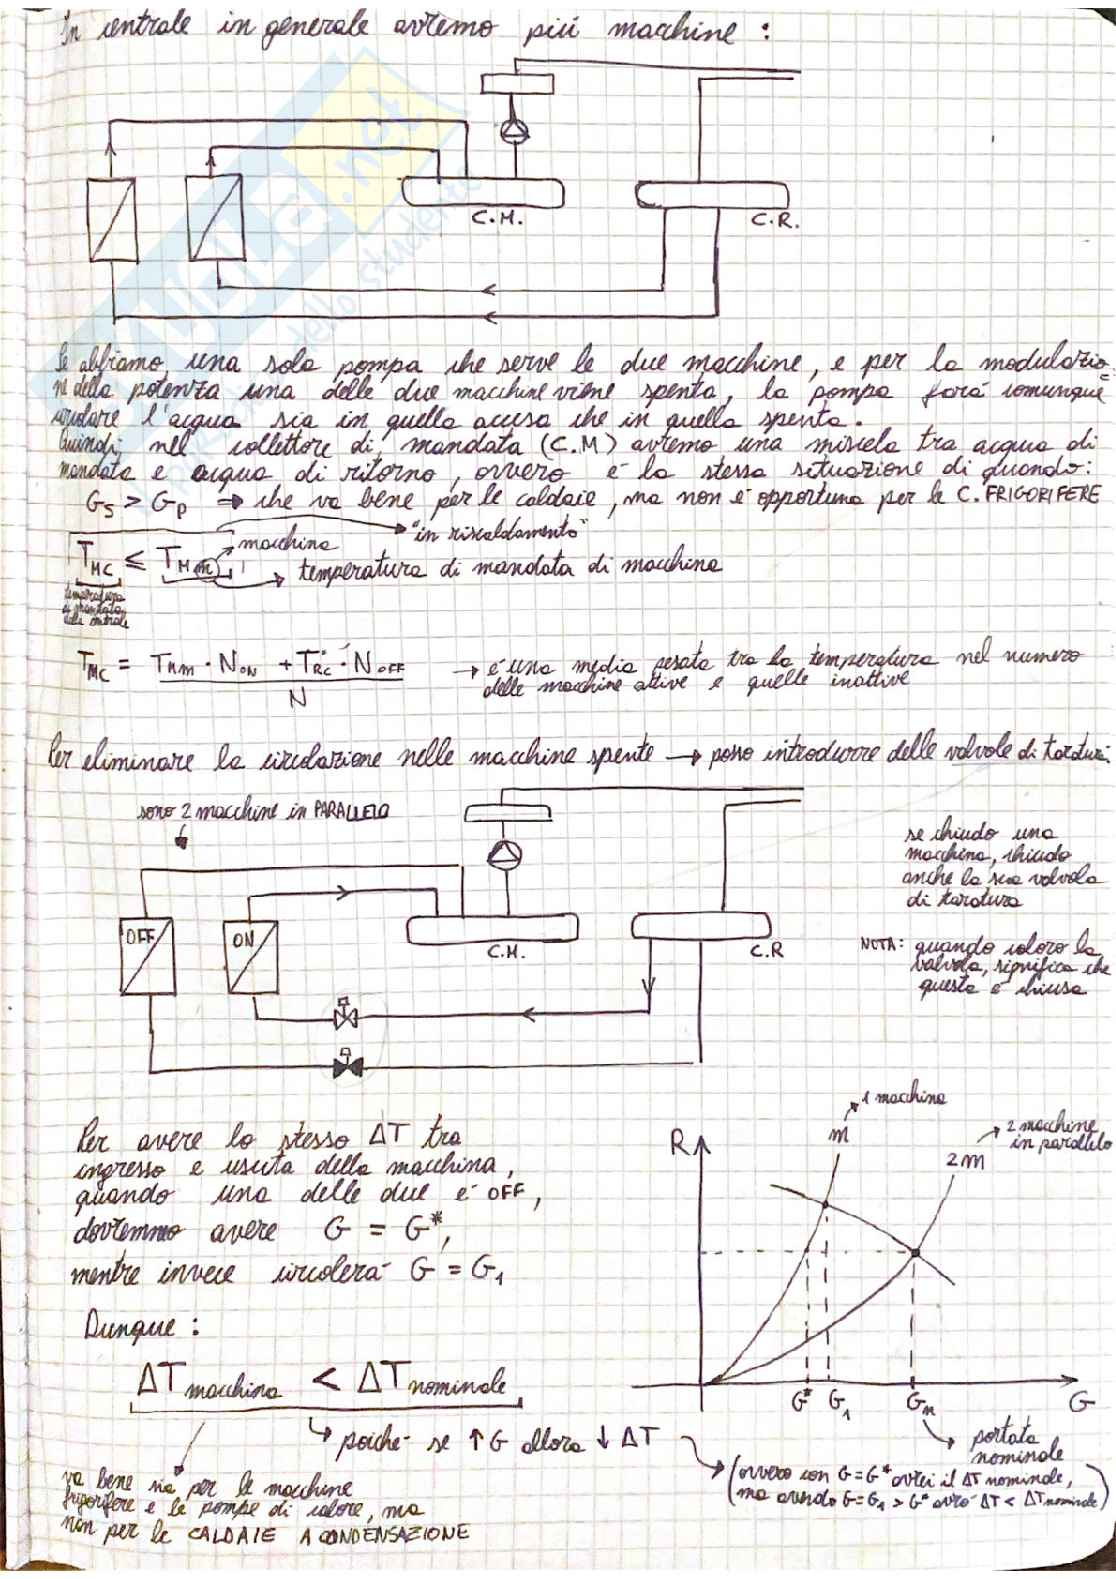 In centrale in generale avremo più macchine :
C.M.
C.R.
Se abbiamo una sola pompa che serve le due macchine, e per la modulazio=
ne della potenza una delle due macchine viene spenta, la pompa farà comunque
circolare l'acqua sia in quella accesa che in quella spenta.
Quindi, nel collettore di mandata (C.M) avremo una miscela tra acqua di
mandata e acqua di ritorno, ovvero è la stessa situazione di quando:
Gs > Gp ⇒ che va bene per le caldaie, ma non è opportuna per le C. FRIGORIFERE
"in riscaldamento"
T_MC ≤ T_Mm
macchina
temperatura di mandata di macchina
temperatura
di mandata
della centrale
T_MC = (T_Mm · N_ON + T_RC · N_OFF) / N → è una media pesata tra la temperatura nel numero
delle macchine attive e quelle inattive
Per eliminare la circolazione nelle macchine spente → posso introdurre delle valvole di taratura
sono 2 macchine in PARALLELO
se chiudo una
macchina, chiudo
anche la sua valvola
di taratura
OFF
ON
C.M.
C.R
NOTA: quando coloro la
valvola, significa che
questa è chiusa
Per avere lo stesso ΔT tra
ingresso e uscita della macchina,
quando una delle due è OFF,
dovremmo avere G = G*,
mentre invece circolerà G = G₁
Dunque :
ΔT macchina < ΔT nominale
→ poiché se ↑ G allora ↓ ΔT
va bene sia per le macchine
frigorifere e le pompe di calore, ma
non per le CALDAIE A CONDENSAZIONE
1 macchina
m
2 macchine
in parallelo
2m
R
G* G₁ Gn G
portata
nominale
(ovvero con G=G* avrei il ΔT nominale,
ma avendo G=G₁ > G* avrò ΔT < ΔT nominale)